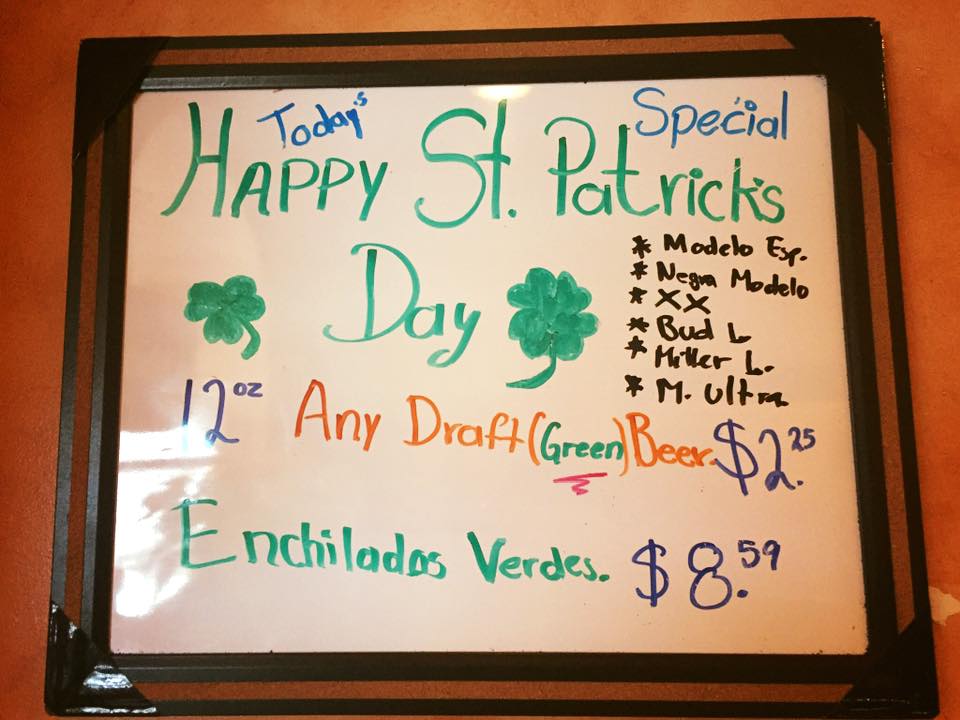 Today's Special
HAPPY St. Patrick's
Day
* Modelo Esp.
* Negra Modelo
* XX
* Bud L
* Miller L.
* M. Ultra
12 oz Any Draft (Green) Beer. $2.25
Enchiladas Verdes. $8.59